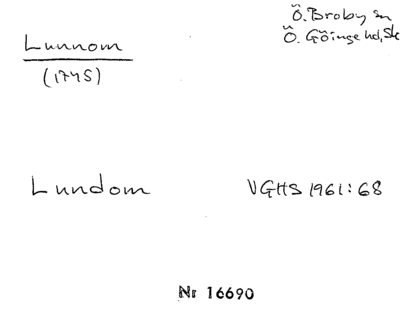 Ö. Broby sn
Ö. Göinge hd, Sk
Lunnom
(1745)
Lundom VGHS 1961:68
Nr 16690